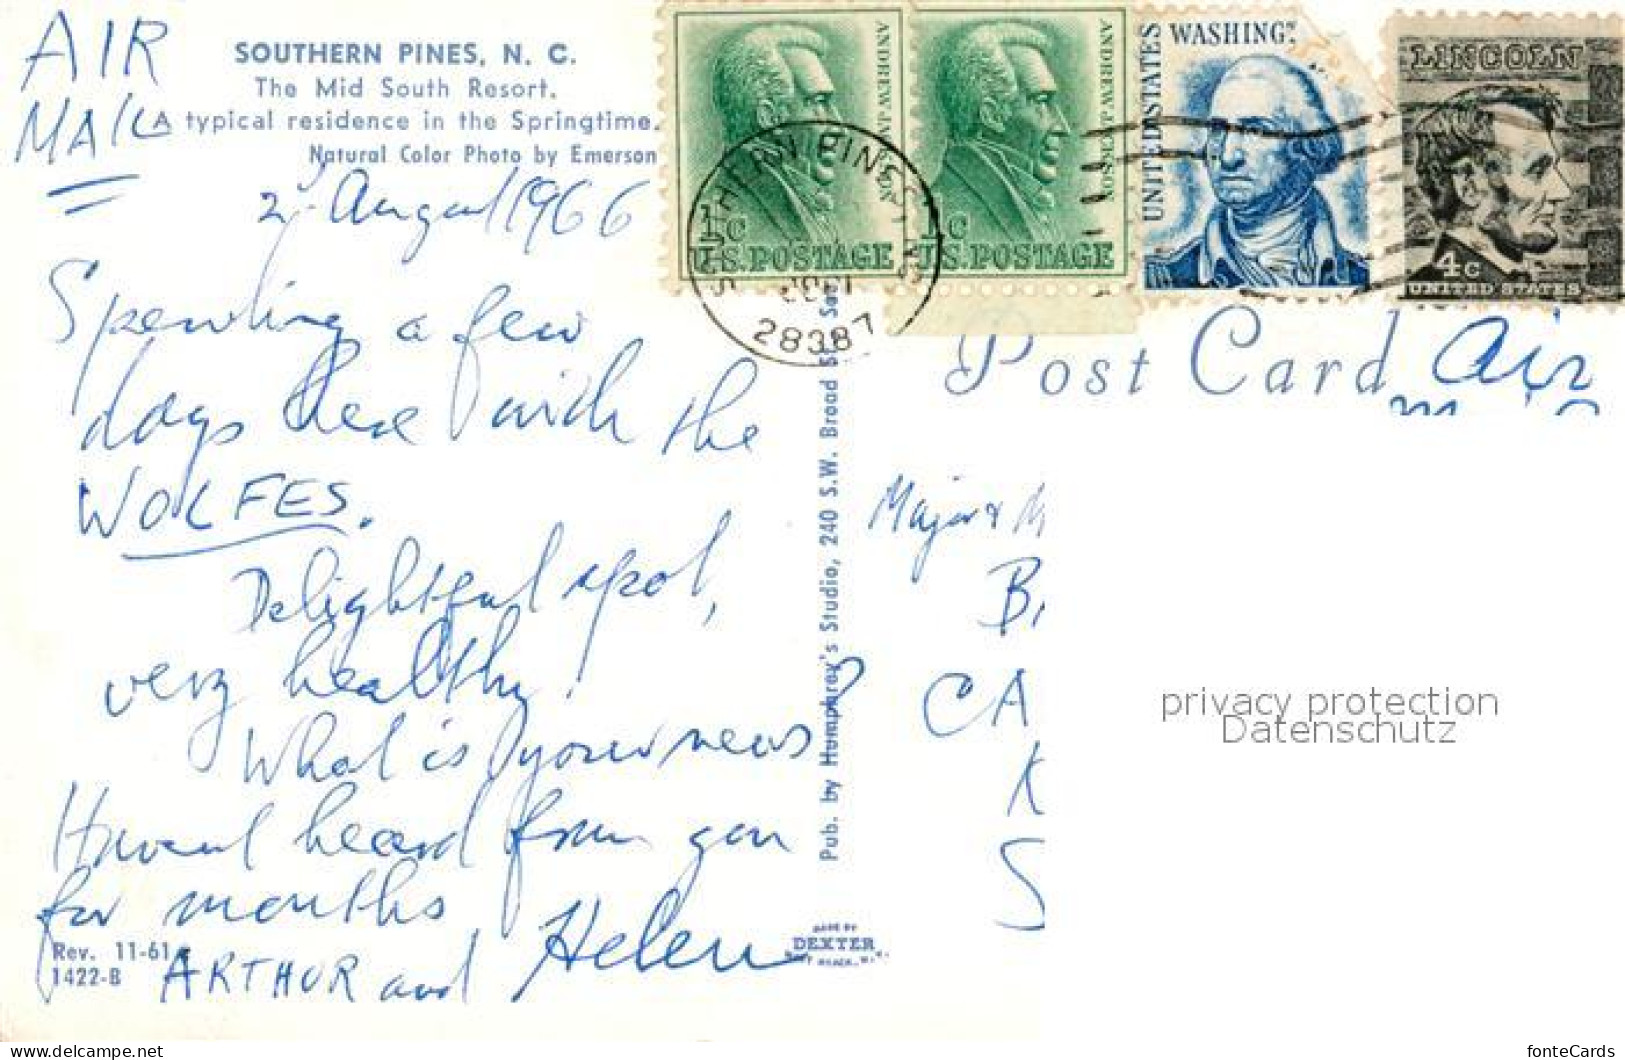 AIR
MAIL
SOUTHERN PINES, N. C.
The Mid South Resort.
A typical residence in the Springtime.
Natural Color Photo by Emerson
2 August 1966
Spending a few
days here with the
WOLFES.
Delightful spot,
very healthy!
What is your news?
Havent heard from you
for months
ARTHUR and Helen
Rev. 11-61
1422-B
Pub. by Humphrey's Studio, 240 S.W. Broad
MADE BY
DEXTER
ANDREW JACKSON
1c
U.S. POSTAGE
ANDREW JACKSON
1c
U.S. POSTAGE
UNITED STATES
WASHINGT
LINCOLN
4c
UNITED STATES
SOUTHERN PINES
28387
Post Card
Air
Major &
CA
K
S
privacy protection
Datenschutz
https://www.delcampe.net
fonteCards